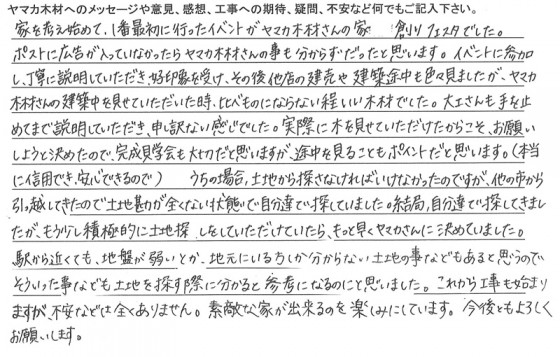 ヤマカ木材へのメッセージや意見、感想、工事への期待、疑問、不安など何でもご記入下さい。
家を考え始めて、1番最初に行ったイベントがヤマカ木材さんの家 創りフェスタでした。
ポストに広告が入っていなかったらヤマカ木材さんの事も分からずだったと思います。イベントに参加
し、丁寧に説明していただき、好印象を受け、その後他店の建売や建築途中も色々見ましたが、ヤマカ
木材さんの建築中を見せていただいた時、比べものにならない程いい木材でした。大工さんも手を止
めてまで説明していただき、申し訳ない感じでした。実際に木を見せていただけたからこそ、お願い
しようと決めたので、完成見学会も大切だと思いますが、途中を見ることもポイントだと思います。(本当
に信用でき、安心できるので) うちの場合、土地から探さなければいけなかったのですが、他の市から
引っ越してきたので土地勘が全くない状態で自分達で探していました。結局、自分達で探してきまし
たが、もう少し積極的に土地探しをしていただけていたら、もっと早くヤマカさんに決めていました。
駅から近くても、地盤が弱いとか、地元にいる方しか分からない土地の事などもあると思うので
そういった事なども土地を探す際に分かると参考になるのにと思いました。これから工事も始まり
ますが、不安などは全くありません。素敵な家が出来るのを楽しみにしています。今後ともよろしく
お願いします。